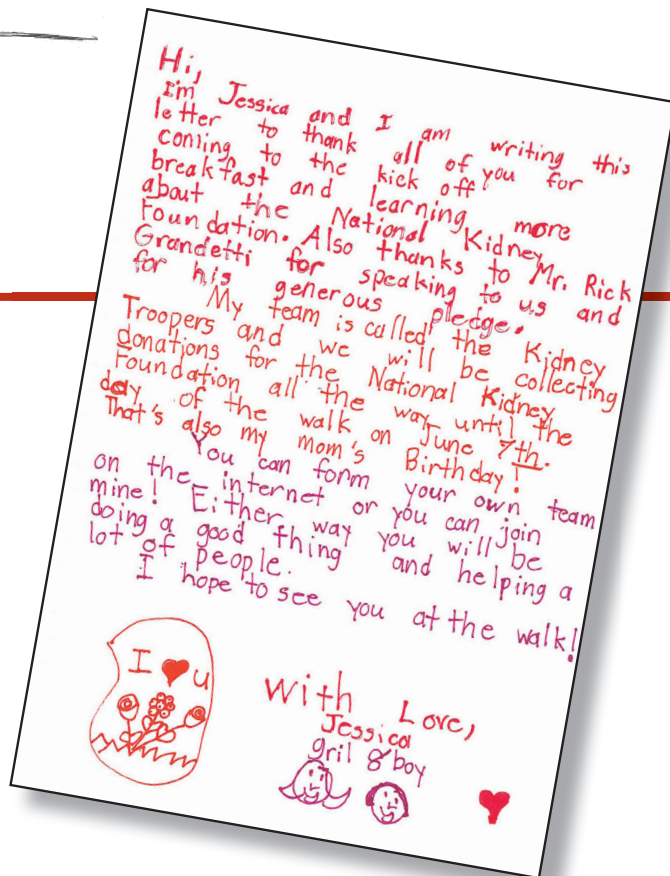 Hi,
I'm Jessica and I am writing this
letter to thank all of you for
coming to the kick off
breakfast and learning more
about the National Kidney
Foundation. Also thanks to Mr. Rick
Grandetti for speaking to us and
for his generous pledge.
My team is called the Kidney
Troopers and we will be collecting
donations for the National Kidney
Foundation all the way until the
day of the walk on June 7th.
That's also my mom's Birthday!
You can form your own team
on the internet or you can join
mine! Either way you will be
doing a good thing and helping a
lot of people.
I hope to see you at the walk!
I ♥ u
With Love,
Jessica
gril & boy